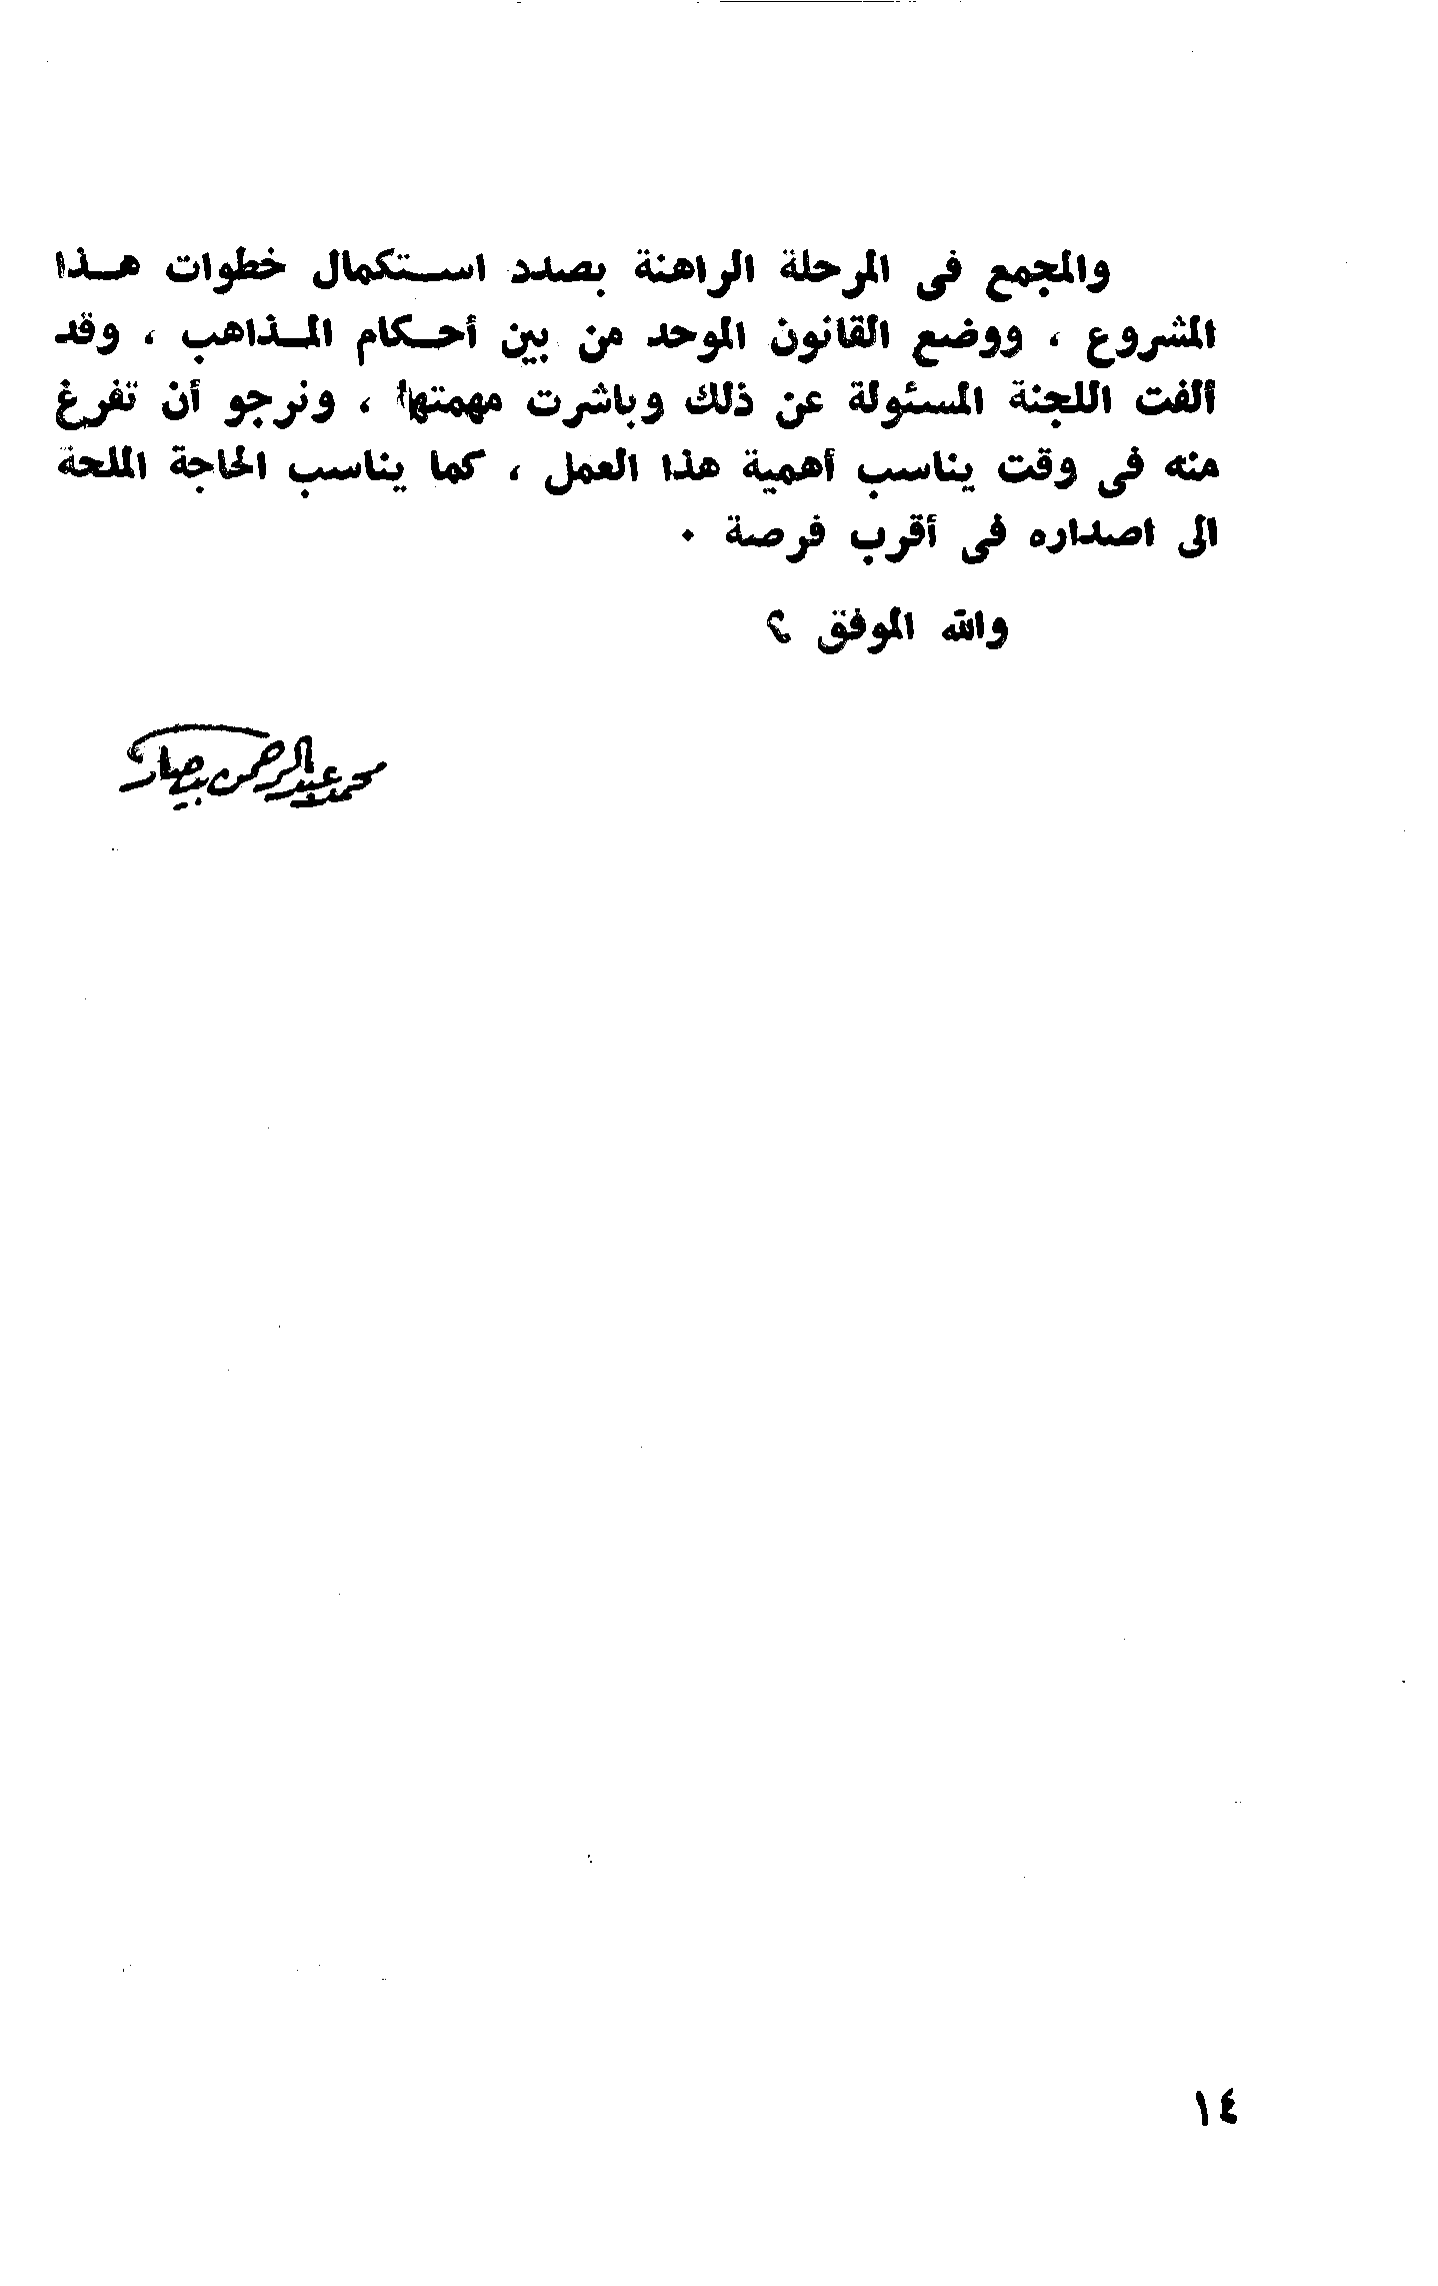 والمجمع فى المرحلة الراهنة بصدد استكمال خطوات هذا
المشروع ، ووضع القانون الموحد من بين أحكام المذاهب ، وقد
ألفت اللجنة المسئولة عن ذلك وباشرت مهمتها ، ونرجو أن تفرغ
منه فى وقت يناسب أهمية هذا العمل ، كما يناسب الحاجة الملحة
الى اصداره فى أقرب فرصة ٠
والله الموفق ؟
محمد عبد الرحمن بيصار
١٤